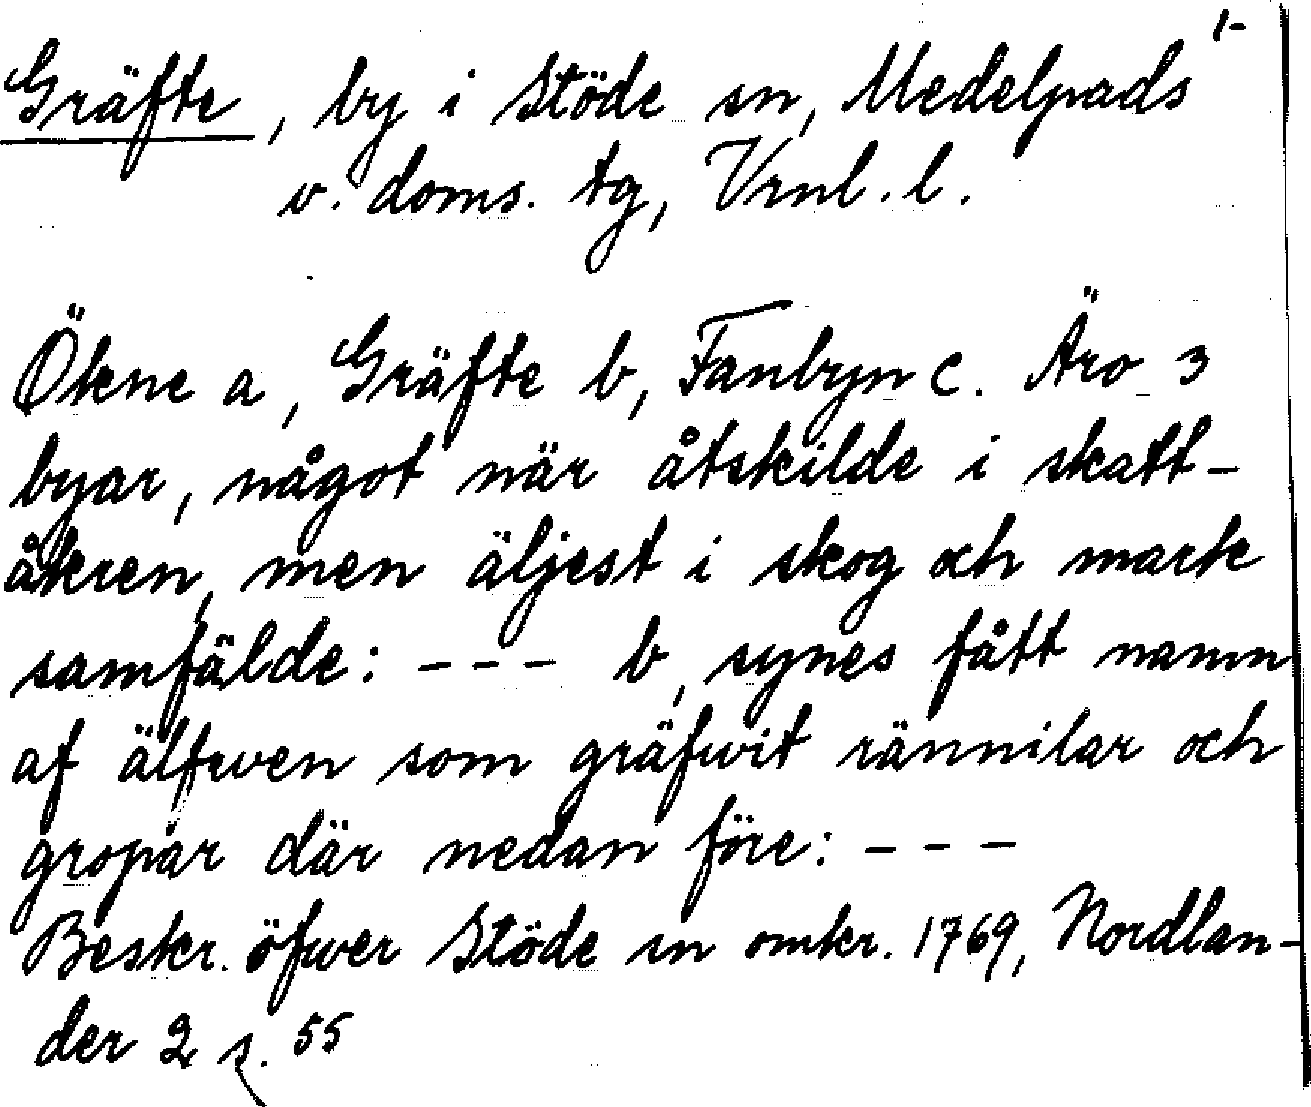 1-
Gräfte, by i Stöde sn, Medelpads
v. doms. tg, Vrnl. l.
Ökne a, Gräfte b, Fanbyn c. Äro 3
byar, något när åtskilde i skatt-
åkren, men äljest i skog och mark
samfälde: - - - b, synes fått namn
af älfwen som gräfwit rännilar och
gropar där nedan före: - - -
Beskr. öfwer Stöde sn omkr. 1769, Nordlan-
der 2 s. 55